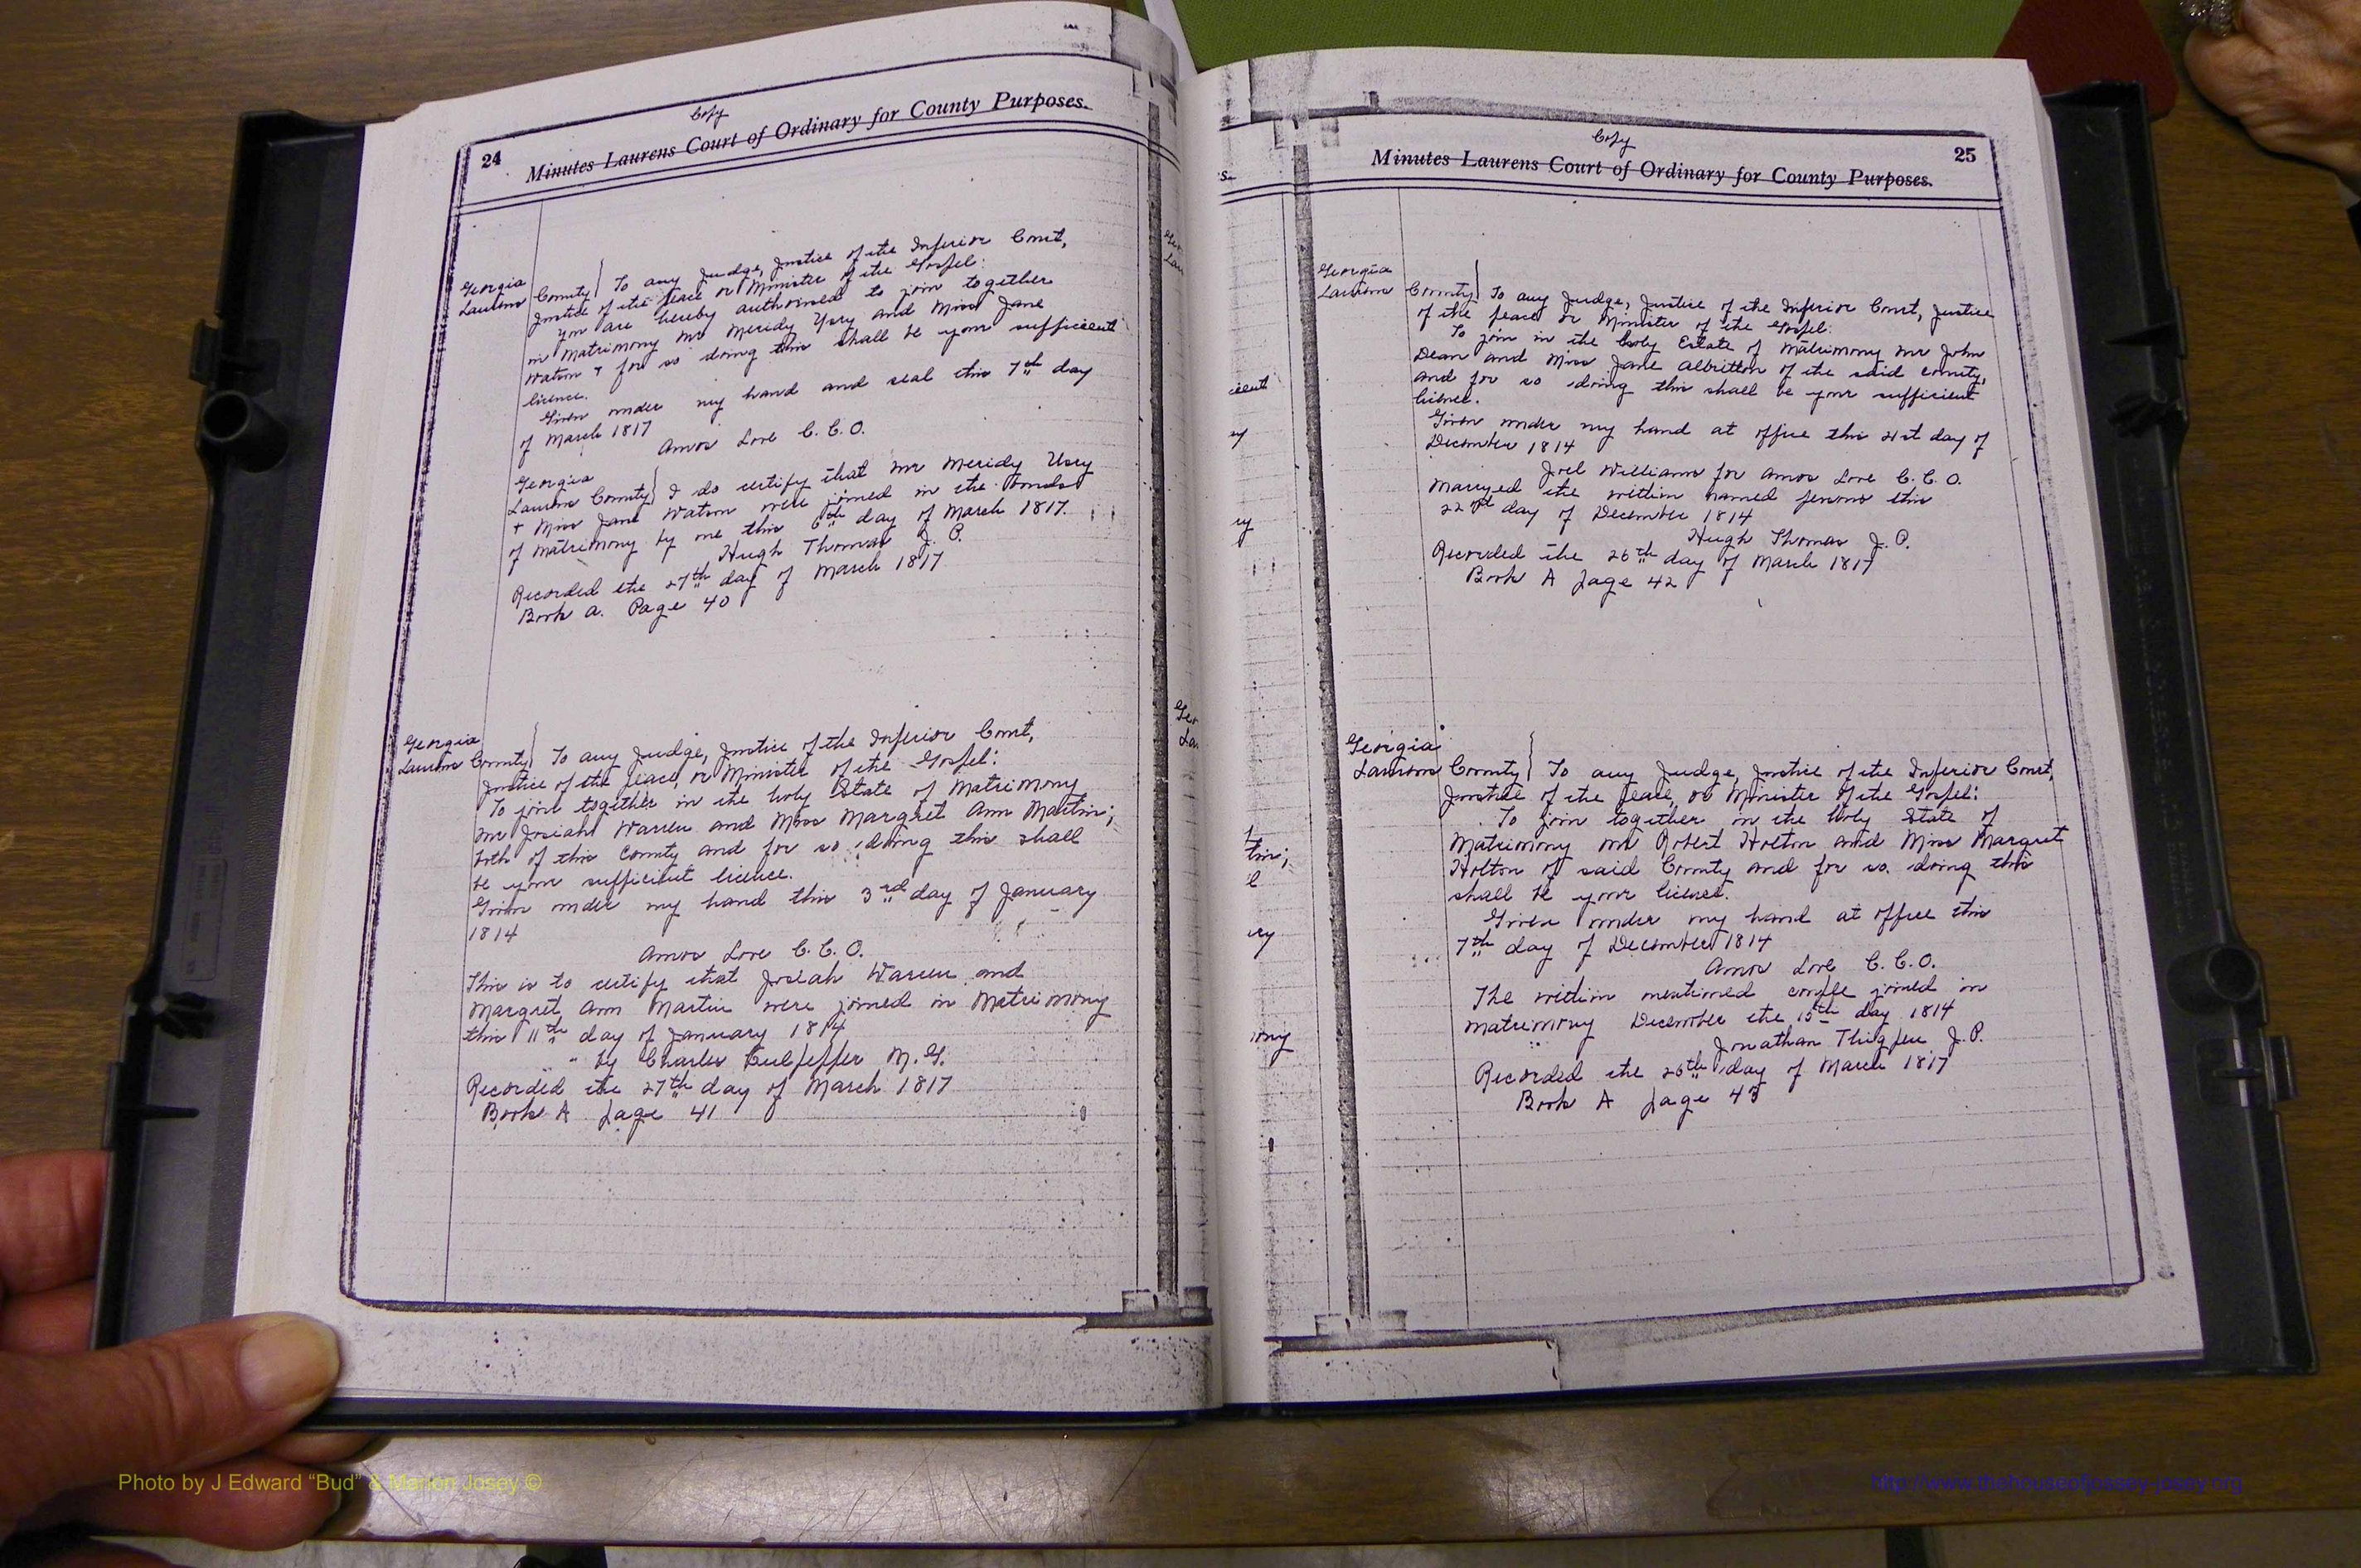 Copy
24 Minutes Laurens Court of Ordinary for County Purposes.
Georgia
Laurens County } To any Judge, Justice of the Inferior Court,
Justice of the peace or Minister of the Gospel:
you are hereby authorised to join together
in Matrimony Mr Meridy Usry and Miss Jane
Watson & for so doing this shall be your sufficient
licence.
Given under my hand and seal this 7th day
of March 1817
Amos Love C.C.O.
Georgia
Laurens County } I do certify that Mr Meridy Usry
+ Miss Jane Watson were joined in the bonds
of Matrimony by me this 6th day of March 1817.
Hugh Thomas J. P.
Recorded the 27th day of March 1817
Book A. Page 40
Georgia
Laurens County } To any Judge, Justice of the Inferior Court,
Justice of the peace, or Minister of the Gospel:
To join together in the holy State of Matrimony
Mr Josiah Warren and Miss Margret Ann Martin;
both of this County and for so doing this shall
be your sufficient licence.
Given under my hand this 3rd day of January
1814
Amos Love C.C.O.
This is to certify that Josiah Warren and
Margret Ann Martin were joined in Matrimony
this 11th day of January 1814
by Charles Culpepper M.G.
Recorded the 27th day of March 1817
Book A page 41
Copy
Minutes Laurens Court of Ordinary for County Purposes. 25
Georgia
Laurens County } To any Judge, Justice of the Inferior Court, Justice
of the peace or Minister of the Gospel:
To join in the holy Estate of Matrimony Mr John
Dean and Miss Jane Albritton of the said County,
and for so doing this shall be your sufficient
license.
Given under my hand at office this 21st day of
December 1814
Joel Williams for Amos Love C.C.O.
Marryed the within named persons this
22nd day of December 1814
Hugh Thomas J.P.
Recorded the 26th day of March 1817
Book A page 42
Georgia
Laurens County } To any Judge, Justice of the Inferior Court,
Justice of the peace, or Minister of the Gospel:
To join together in the holy State of
Matrimony Mr Robert Holton and Miss Margret
Holton of said County and for so doing this
shall be your license.
Given under my hand at office this
7th day of December 1814
Amos Love C.C.O.
The within mentioned couple joined in
matrimony December the 15th day 1814
Jonathan Thigpen J.P.
Recorded the 26th day of March 1817
Book A page 43
Photo by J Edward “Bud” & Marion Josey ©
http://www.thehouseofjossey-josey.org